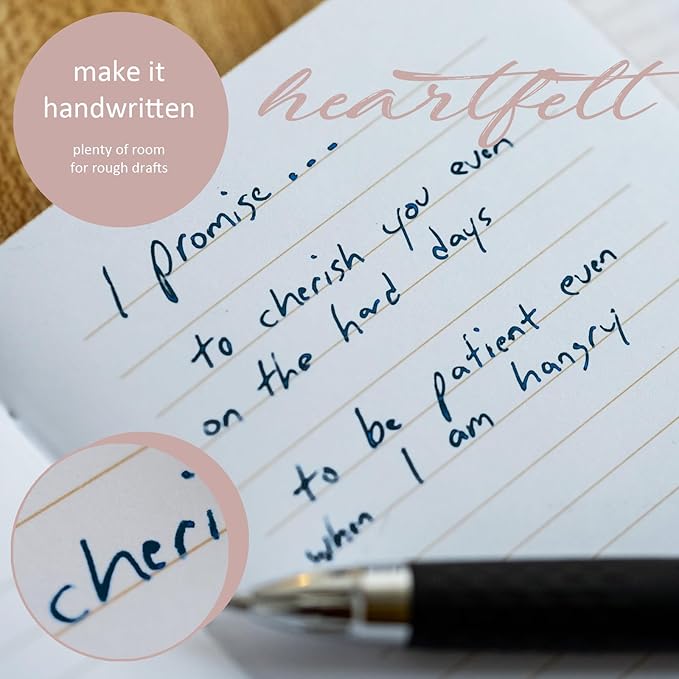 make it
handwritten
plenty of room
for rough drafts
heartfelt
I promise...
to cherish you even
on the hard days
to be patient even
when I am hangry
cheri